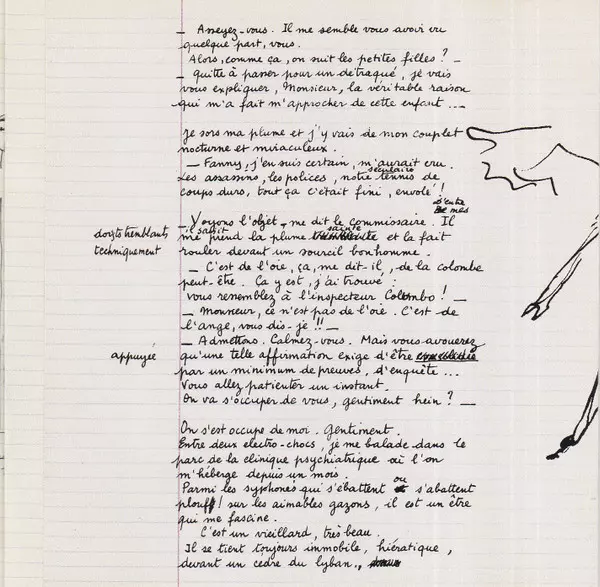 _ Asseyez-vous. Il me semble vous avoir vu
quelque part, vous.
Alors, comme ça, on suit les petites filles ? _
_ quitte à passer pour un détraqué, je vais
vous expliquer, Monsieur, la véritable raison
qui m'a fait m'approcher de cette enfant ...
Je sors ma plume et j'y vais de mon couplet
nocturne et miraculeux.
_ Fanny, j'en suis certain, m'aurait cru.
séculaire
Les assassins, les polices, notre tennis de
coups durs, tout ça c'était fini, envolé !
d'entre
mes
_ Voyons l'objet, me dit le commissaire. Il
doigts tremblants, il saisit
sainte
me prend la plume et la fait
techniquement
rouler devant un sourcil bonhomme.
_ C'est de l'oie, ça, me dit-il, de la colombe
peut-être. Ca y est, j'ai trouvé :
vous ressemblez à l'inspecteur Colombo ! _
_ Monsieur, ce n'est pas de l'oie. C'est de
l'ange, vous dis-je !! _
_ Admettons. Calmez-vous. Mais vous avouerez
appuyée
qu'une telle affirmation exige d'être
par un minimum de preuves, d'enquête ...
Vous allez patienter un instant.
On va s'occuper de vous, gentiment hein ? _
On s'est occupé de moi. Gentiment.
Entre deux electro-chocs, je me balade dans le
parc de la clinique psychiatrique où l'on
m'héberge depuis un mois.
ou
Parmi les syphones qui s'ébattent s'abattent
plouff ! sur les aimables gazons, il est un être
qui me fascine.
C'est un vieillard, très beau.
Il se tient toujours immobile, hiératique,
devant un cèdre du lyban.,